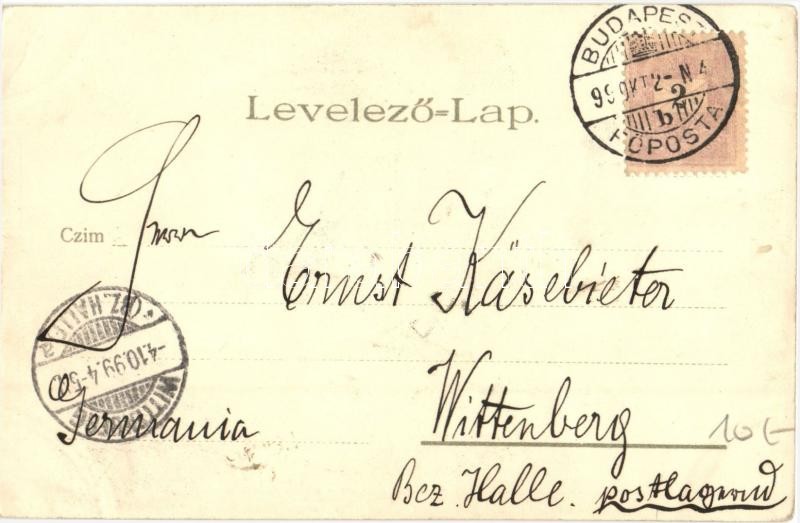 BUDAPEST
99 OKT 2 - N 4
2
b
FŐPOSTA
Levelező=Lap.
Czim
Herrn
Ernst Käsebieter
(BZ. HALLE)
-4.10.99.4-5
a
Germania
Wittenberg
10 €-
Bez. Halle. postlagernd